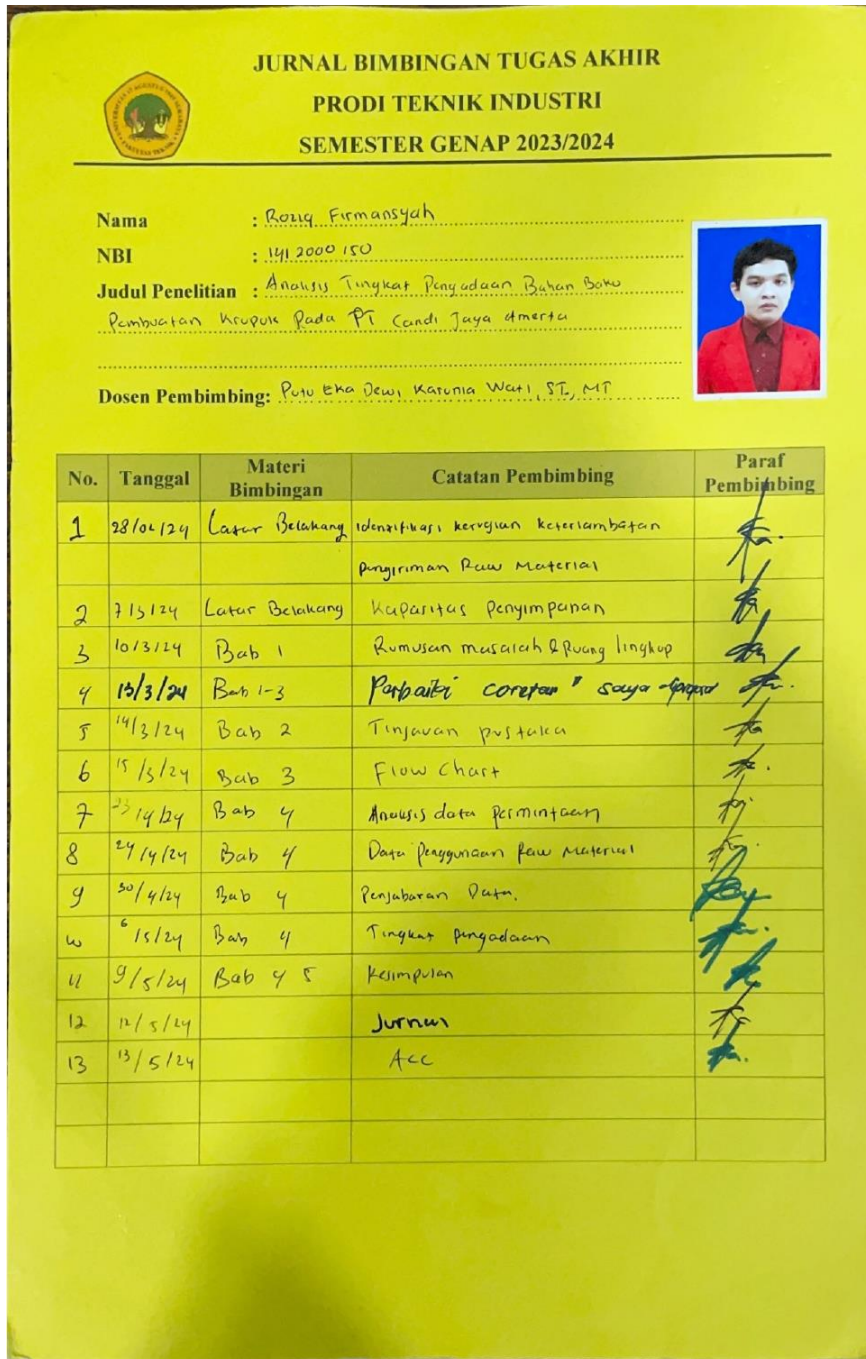 JURNAL BIMBINGAN TUGAS AKHIR
PRODI TEKNIK INDUSTRI
SEMESTER GENAP 2023/2024
Nama : Roziq Firmansyah
NBI : 1412000150
Judul Penelitian : Analisis Tingkat Pengadaan Bahan Baku
Pembuatan Krupuk Pada PT Candi Jaya Amerta
Dosen Pembimbing: Putu Eka Dewi Karunia Wati, ST., MT
No. Tanggal Materi Bimbingan Catatan Pembimbing Paraf Pembimbing
1 28/02/24 Latar Belakang identifikasi kerugian keterlambatan
pengiriman Raw Material
2 7/3/24 Latar Belakang Kapasitas penyimpanan
3 10/3/24 Bab 1 Rumusan masalah & Ruang lingkup
4 13/3/24 Bab 1-3 Perbaiki coretan " saya
5 14/3/24 Bab 2 Tinjauan pustaka
6 15/3/24 Bab 3 Flow Chart
7 23/4/24 Bab 4 Analisis data permintaan
8 24/4/24 Bab 4 Data penggunaan Raw Material
9 30/4/24 Bab 4 Penjabaran Data.
10 6/5/24 Bab 4 Tingkat pengadaan
11 9/5/24 Bab 4 5 Kesimpulan
12 12/5/24 Jurnal
13 13/5/24 Acc